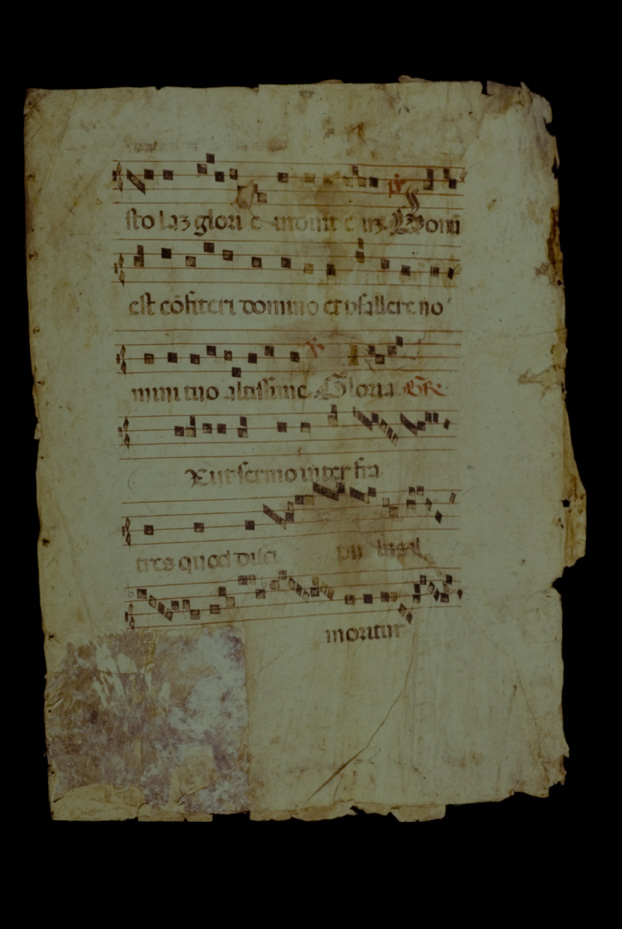 sto laz glori e induit e um ps Bonū
est cōfiteri domino et psallere no
mini tuo altissime Gloria GR
Exiit sermo inter fra
tres quod disci pu lus il
moritur